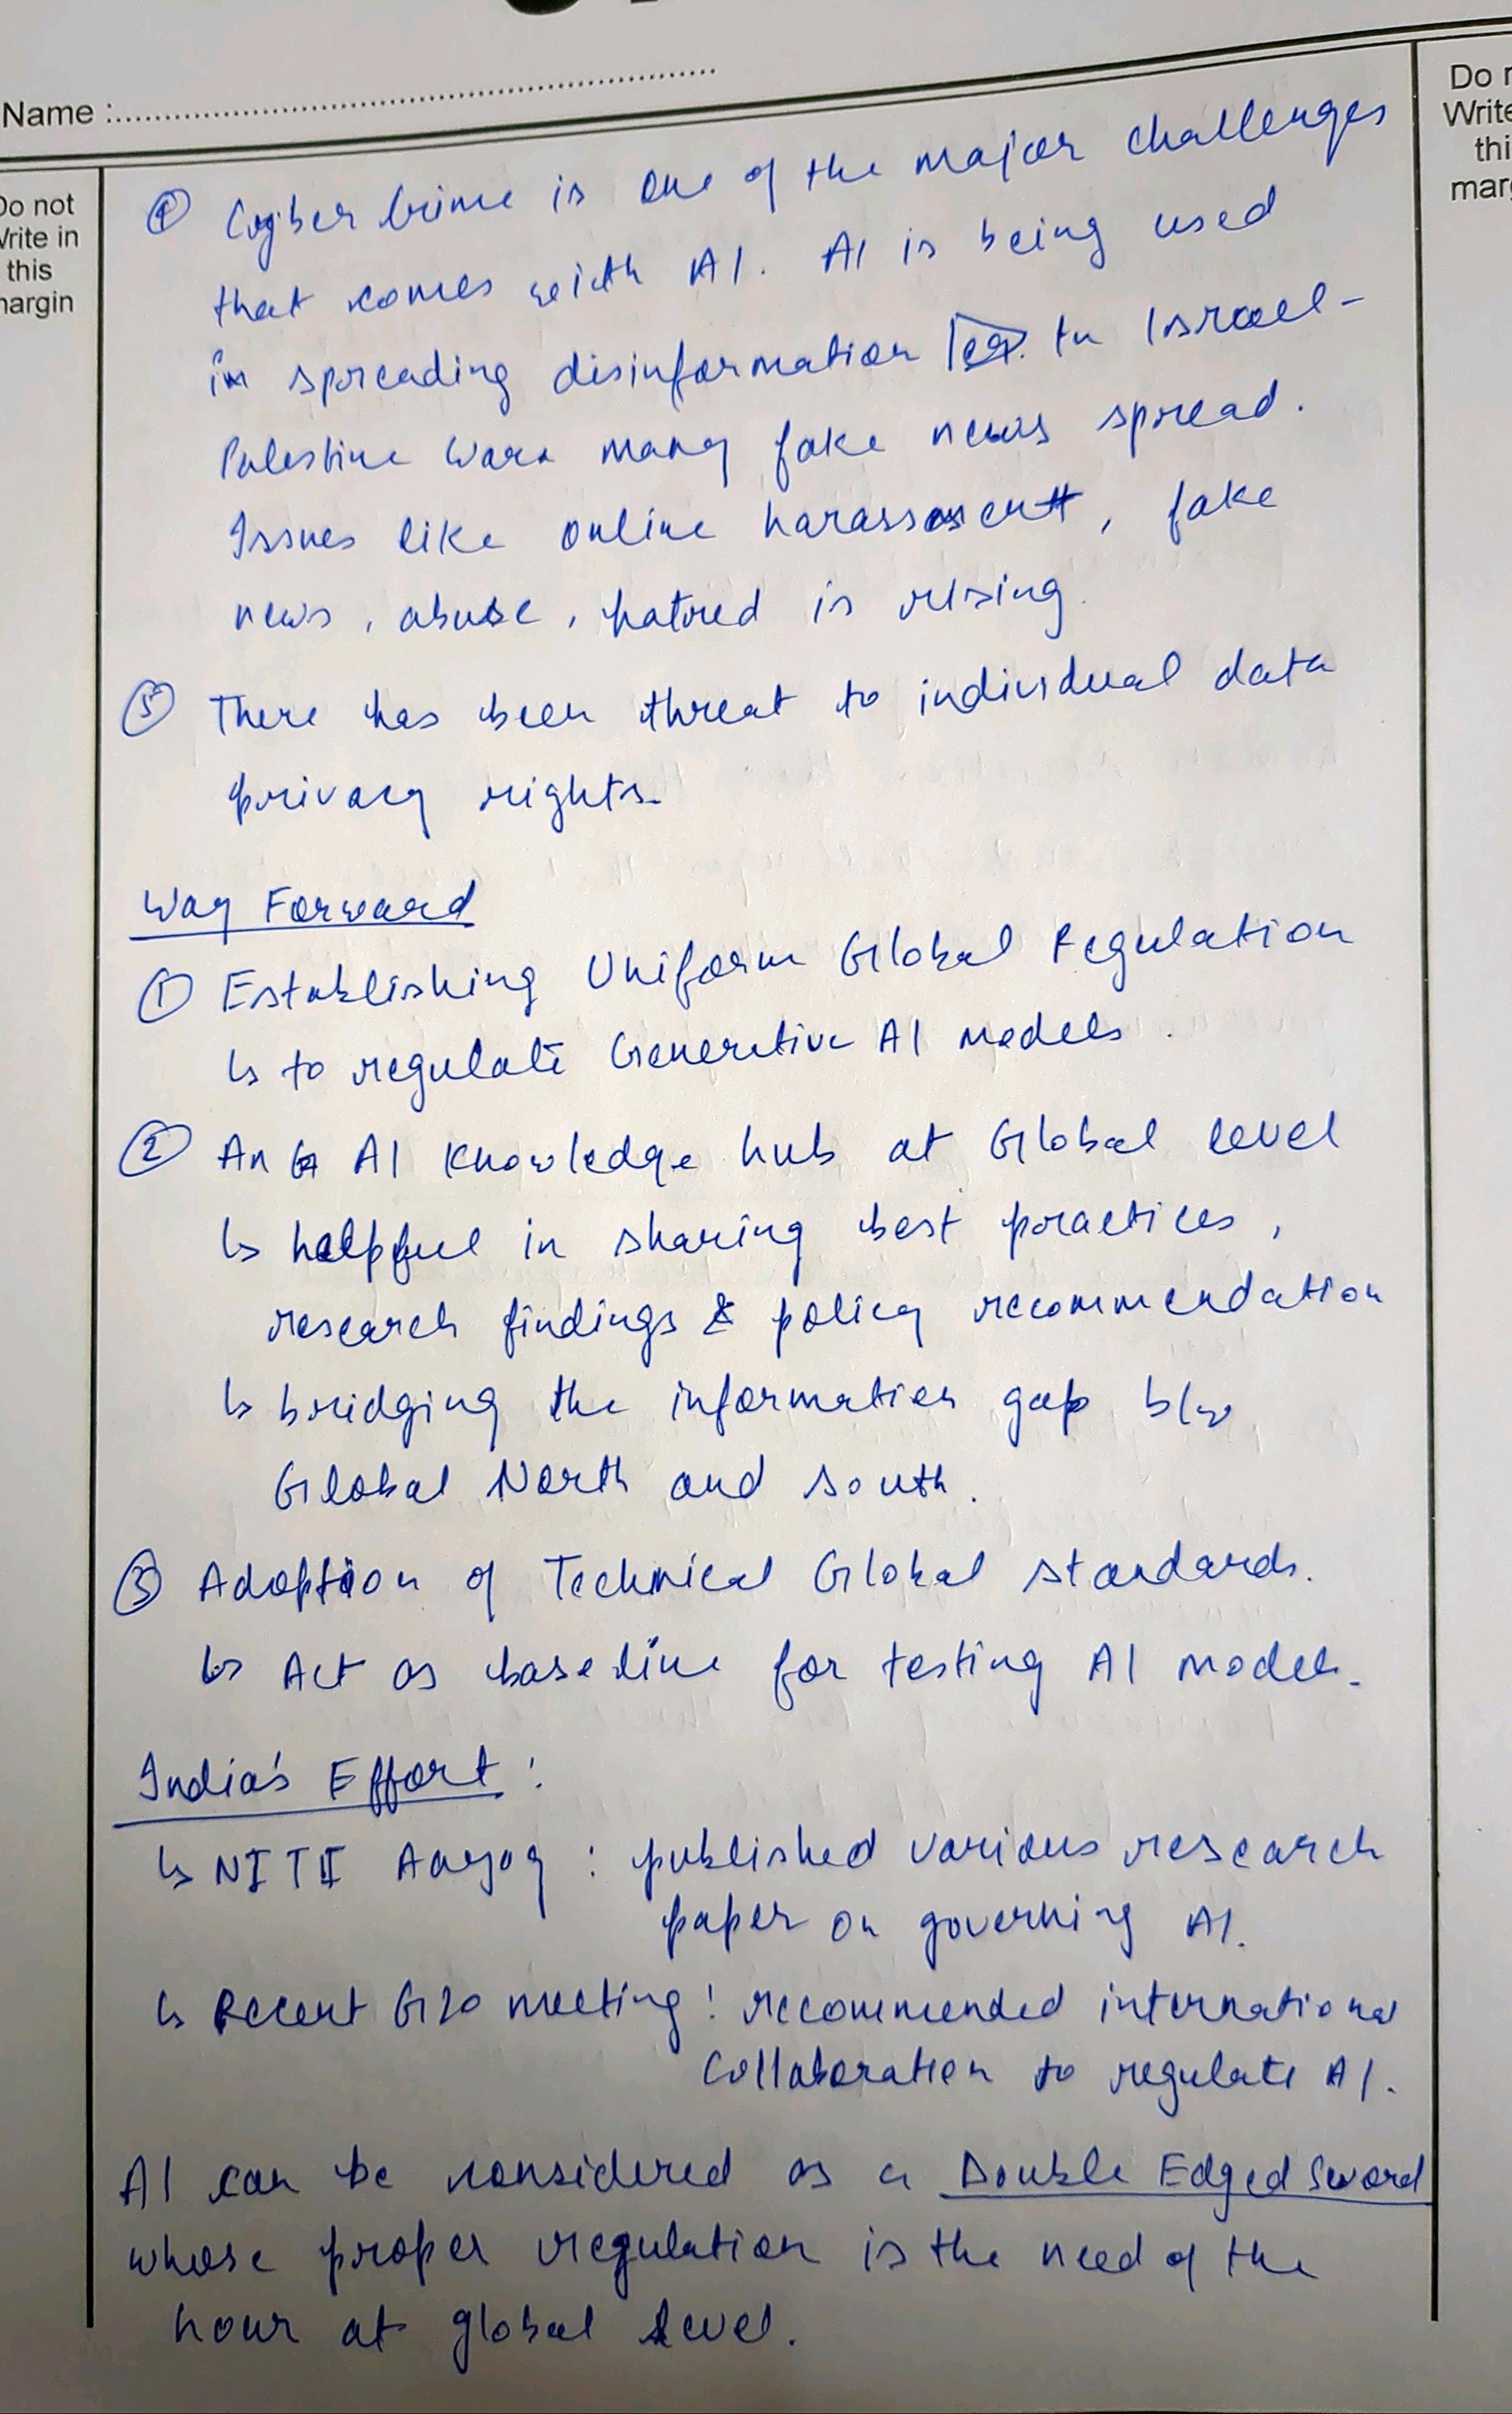 Name :
Do not
Write in
this
margin
Do n
Write
thi
mar
④ Cyber Crime is one of the major challenges
that comes with AI. AI is being used
in spreading disinformation eg. In Israel-
Palestine War many fake news spread.
Issues like online harassment, fake
news, abuse, hatred is rising.
⑤ There has been threat to individual data
privacy rights.
Way Forward
① Establishing Uniform Global Regulation
↳ to regulate Generative AI models.
② An AI Knowledge hub at Global level
↳ helpful in sharing best practices,
research findings & policy recommendation
↳ bridging the information gap b/w
Global North and South.
③ Adoption of Technical Global standards.
↳ Act as baseline for testing AI models.
India's Effort :
↳ NITI Aayog : published various research
paper on governing AI.
↳ Recent G20 meeting : recommended international
Collaboration to regulate AI.
AI can be considered as a Double Edged Sword
whose proper regulation is the need of the
hour at global level.